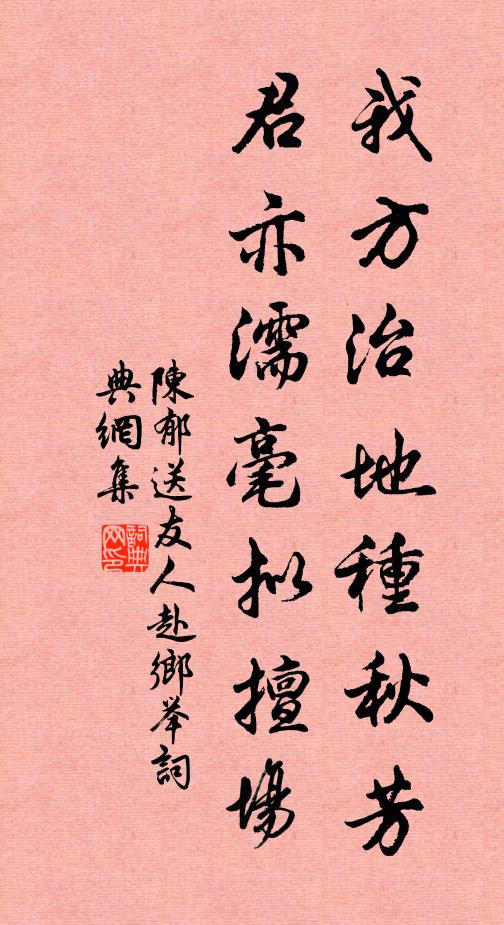 我方治地種秋芳
君亦濡毫拟擅場
陳郁送友人赴鄉举詞
典網集
詞典网印